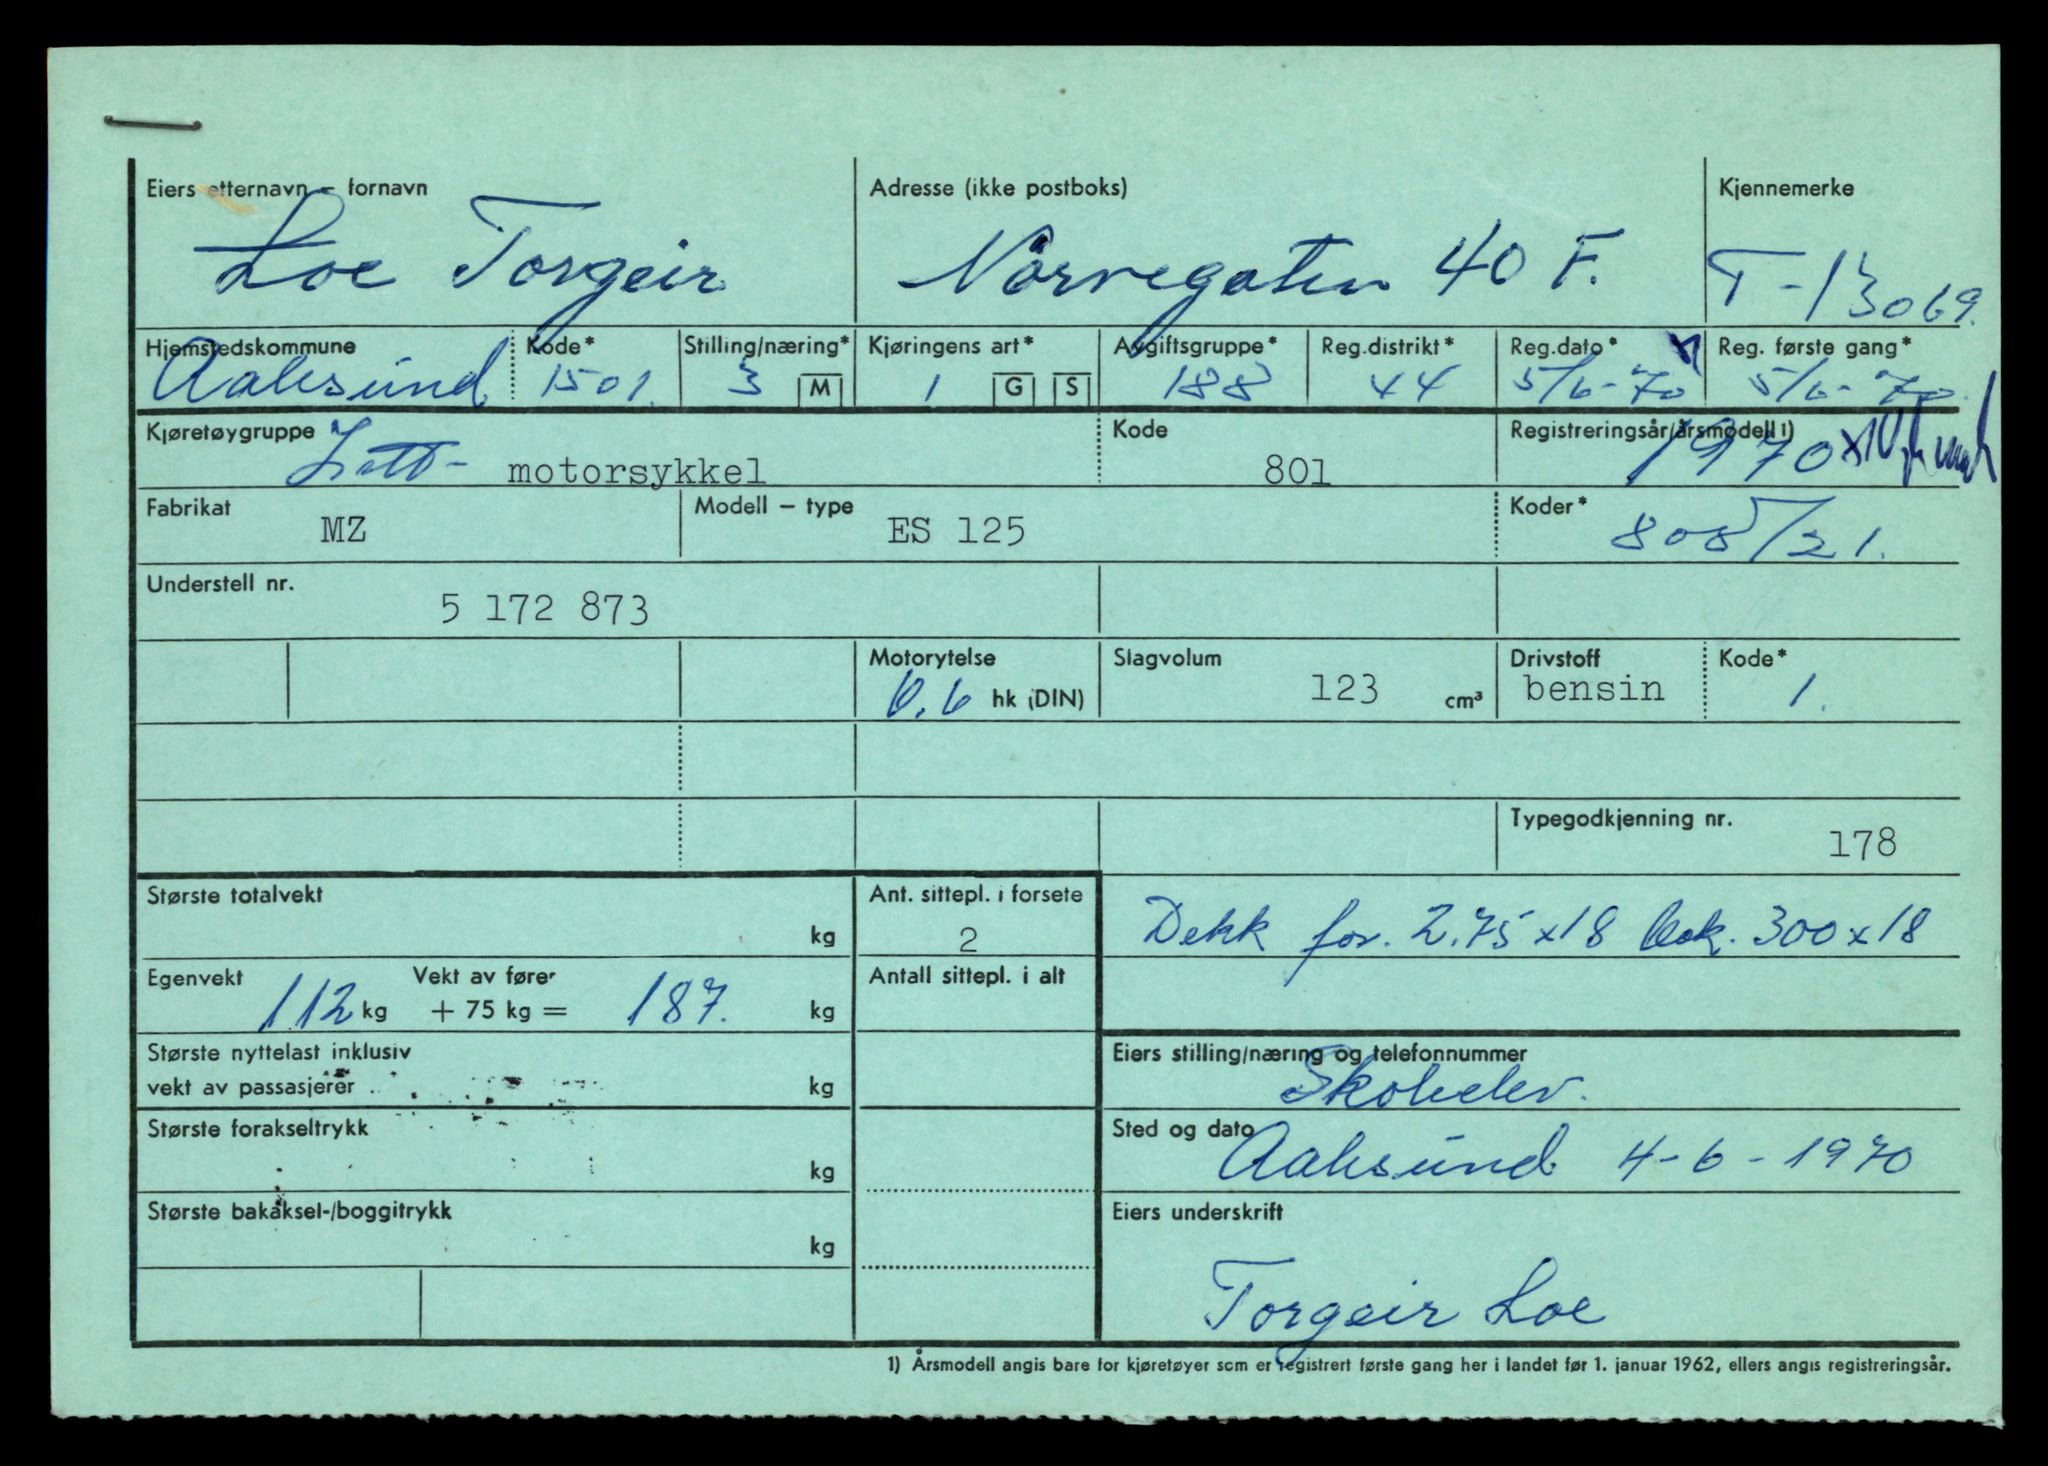 Eiers etternavn - fornavn Adresse (ikke postboks) Kjennemerke
Loe Torgeir Nørvegaten 40 F. T-13069.
Hjemstedskommune Kode* Stilling/næring* Kjøringens art* Avgiftsgruppe* Reg.distrikt* Reg.dato* Reg. første gang*
Aalesund 1501. 3 M 1 G S 188 44 5/6-70 5/6-70.
Kjøretøygruppe Kode Registreringsår/årsmodell 1)
Lett- motorsykkel 801 1970
Fabrikat Modell - type Koder*
MZ ES 125 808/21.
Understell nr.
5 172 873
Motorytelse Slagvolum Drivstoff Kode*
hk (DIN) 123 cm³ bensin 1.
Typegodkjenning nr.
178
Største totalvekt Ant. sittepl. i forsete
kg 2 Dekk for. 2.75x18 bak. 300x18
Egenvekt Vekt av fører Antall sittepl. i alt
112 kg + 75 kg = 187. kg
Største nyttelast inklusiv Eiers stilling/næring og telefonnummer
vekt av passasjerer kg Skoleelev.
Største forakseltrykk Sted og dato
kg Aalesund 4-6-1970
Største bakaksel-/boggitrykk Eiers underskrift
kg
Torgeir Loe
1) Årsmodell angis bare for kjøretøyer som er registrert første gang her i landet før 1. januar 1962, ellers angis registreringsår.